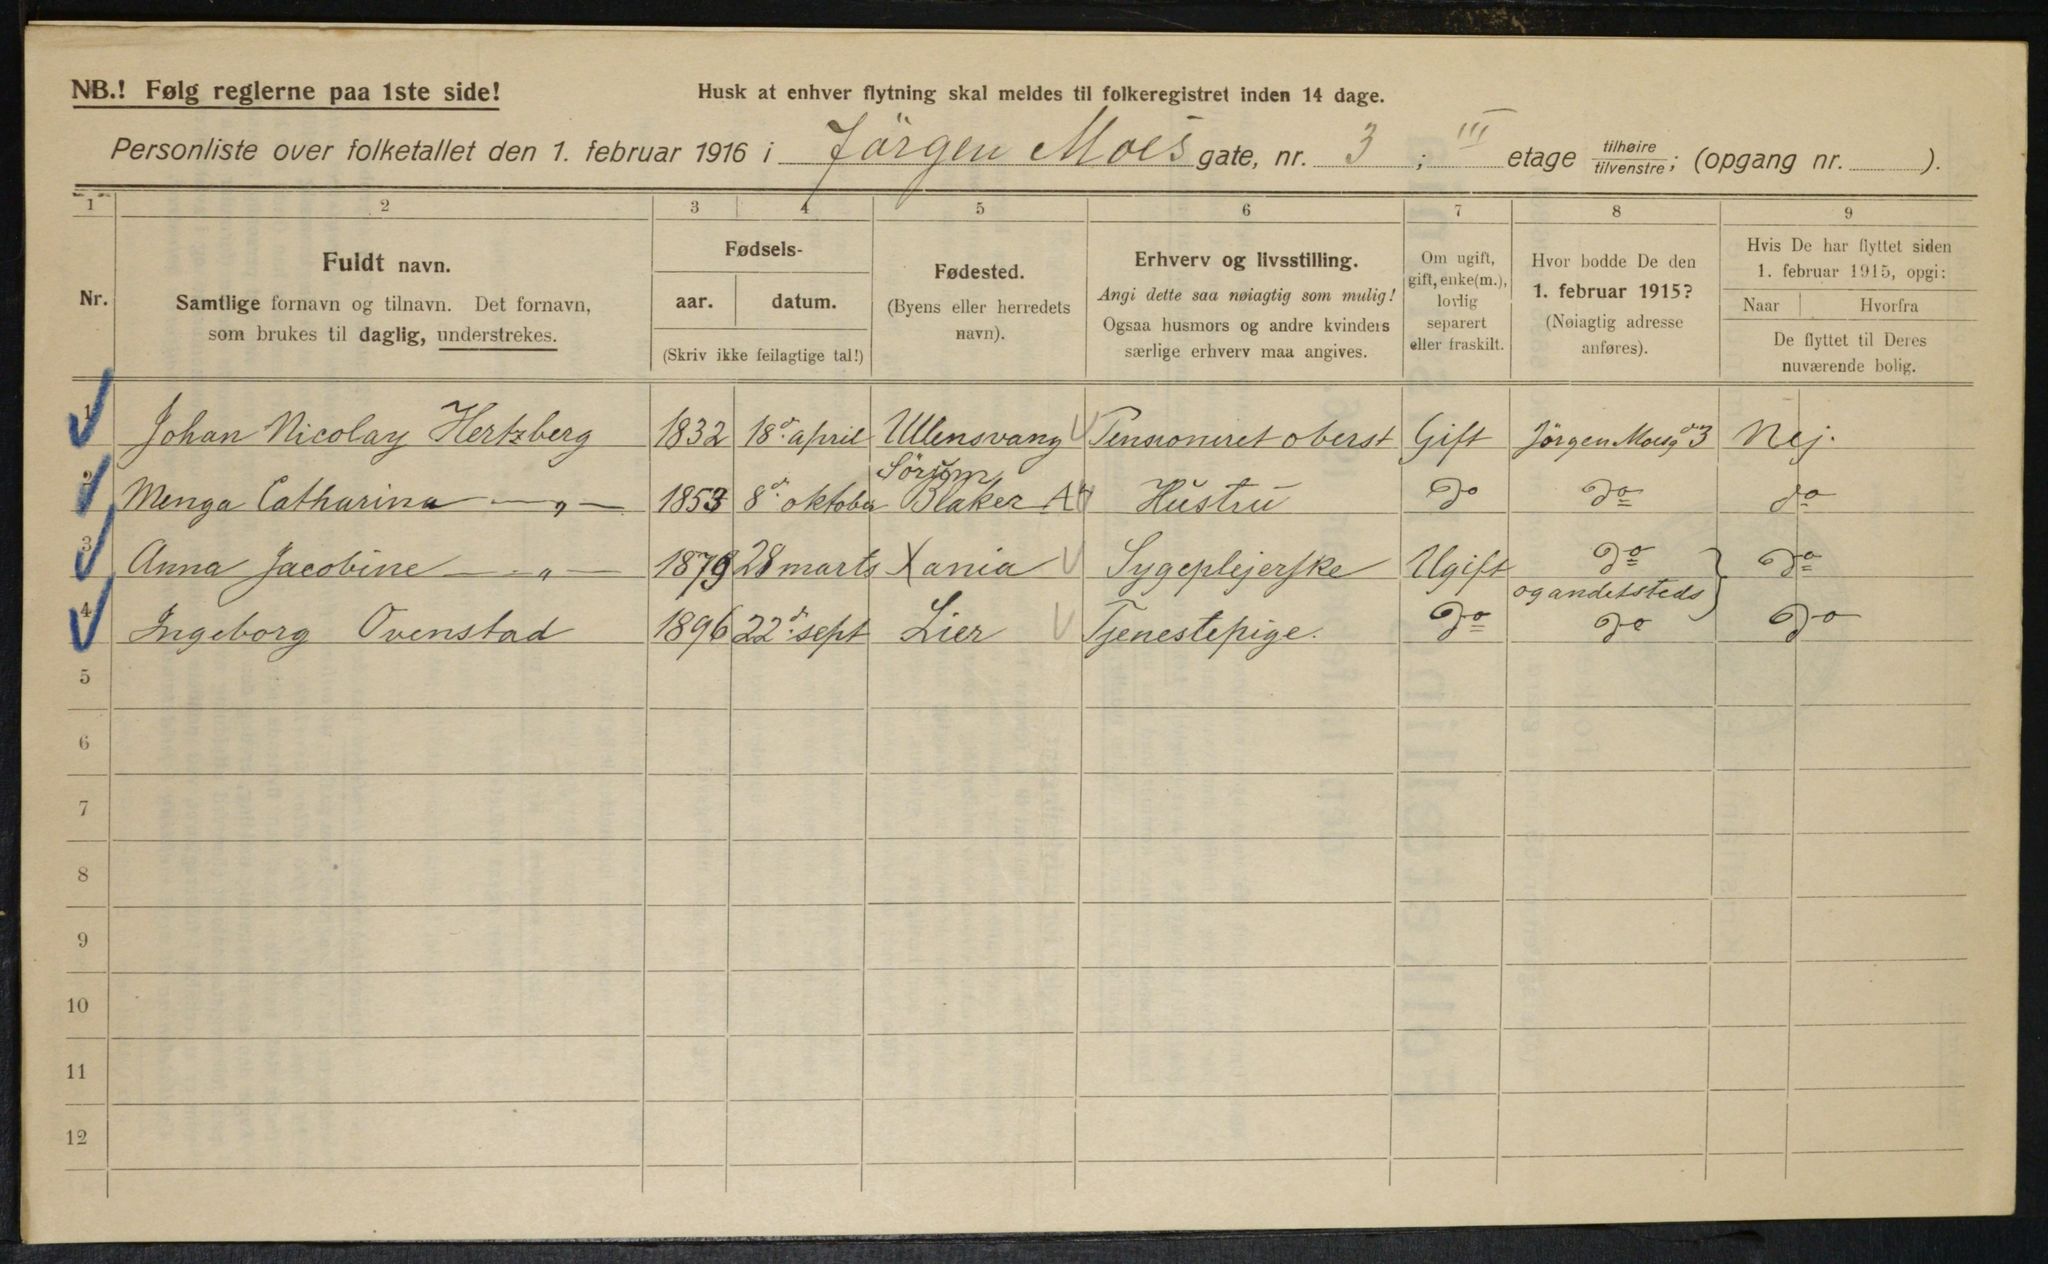 NB.! Følg reglerne paa 1ste side!
Husk at enhver flytning skal meldes til folkeregistret inden 14 dage.
Personliste over folketallet den 1. februar 1916 i Jörgen Moes gate, nr. 3; III etage tilhøire/tilvenstre; (opgang nr. ).
1 2 3 4 5 6 7 8 9
Nr.
Fuldt navn.
Samtlige fornavn og tilnavn. Det fornavn,
som brukes til daglig, understrekes.
Fødsels-
aar. datum.
(Skriv ikke feilagtige tal!)
Fødested.
(Byens eller herredets
navn).
Erhverv og livsstilling.
Angi dette saa nøiagtig som mulig!
Ogsaa husmors og andre kvinders
særlige erhverv maa angives.
Om ugift,
gift, enke(m.),
lovlig
separert
eller fraskilt.
Hvor bodde De den
1. februar 1915?
(Nøiagtig adresse
anføres).
Hvis De har flyttet siden
1. februar 1915, opgi:
Naar Hvorfra
De flyttet til Deres
nuværende bolig.
1 Johan Nicolay Hertzberg 1832 18de april Ullensvang Pensioneret oberst Gift Jörgen Moesg. 3 Nej.
Sörum
2 Menga Catharina — „ — 1853 8de oktober Blaker Hustru do do do
3 Anna Jacobine — „ — 1879 28 marts Xania Sygeplejerske Ugift do do
og andetsteds
4 Ingeborg Ovenstad 1896 22de sept Lier Tjenestepige. do do do
5
6
7
8
9
10
11
12